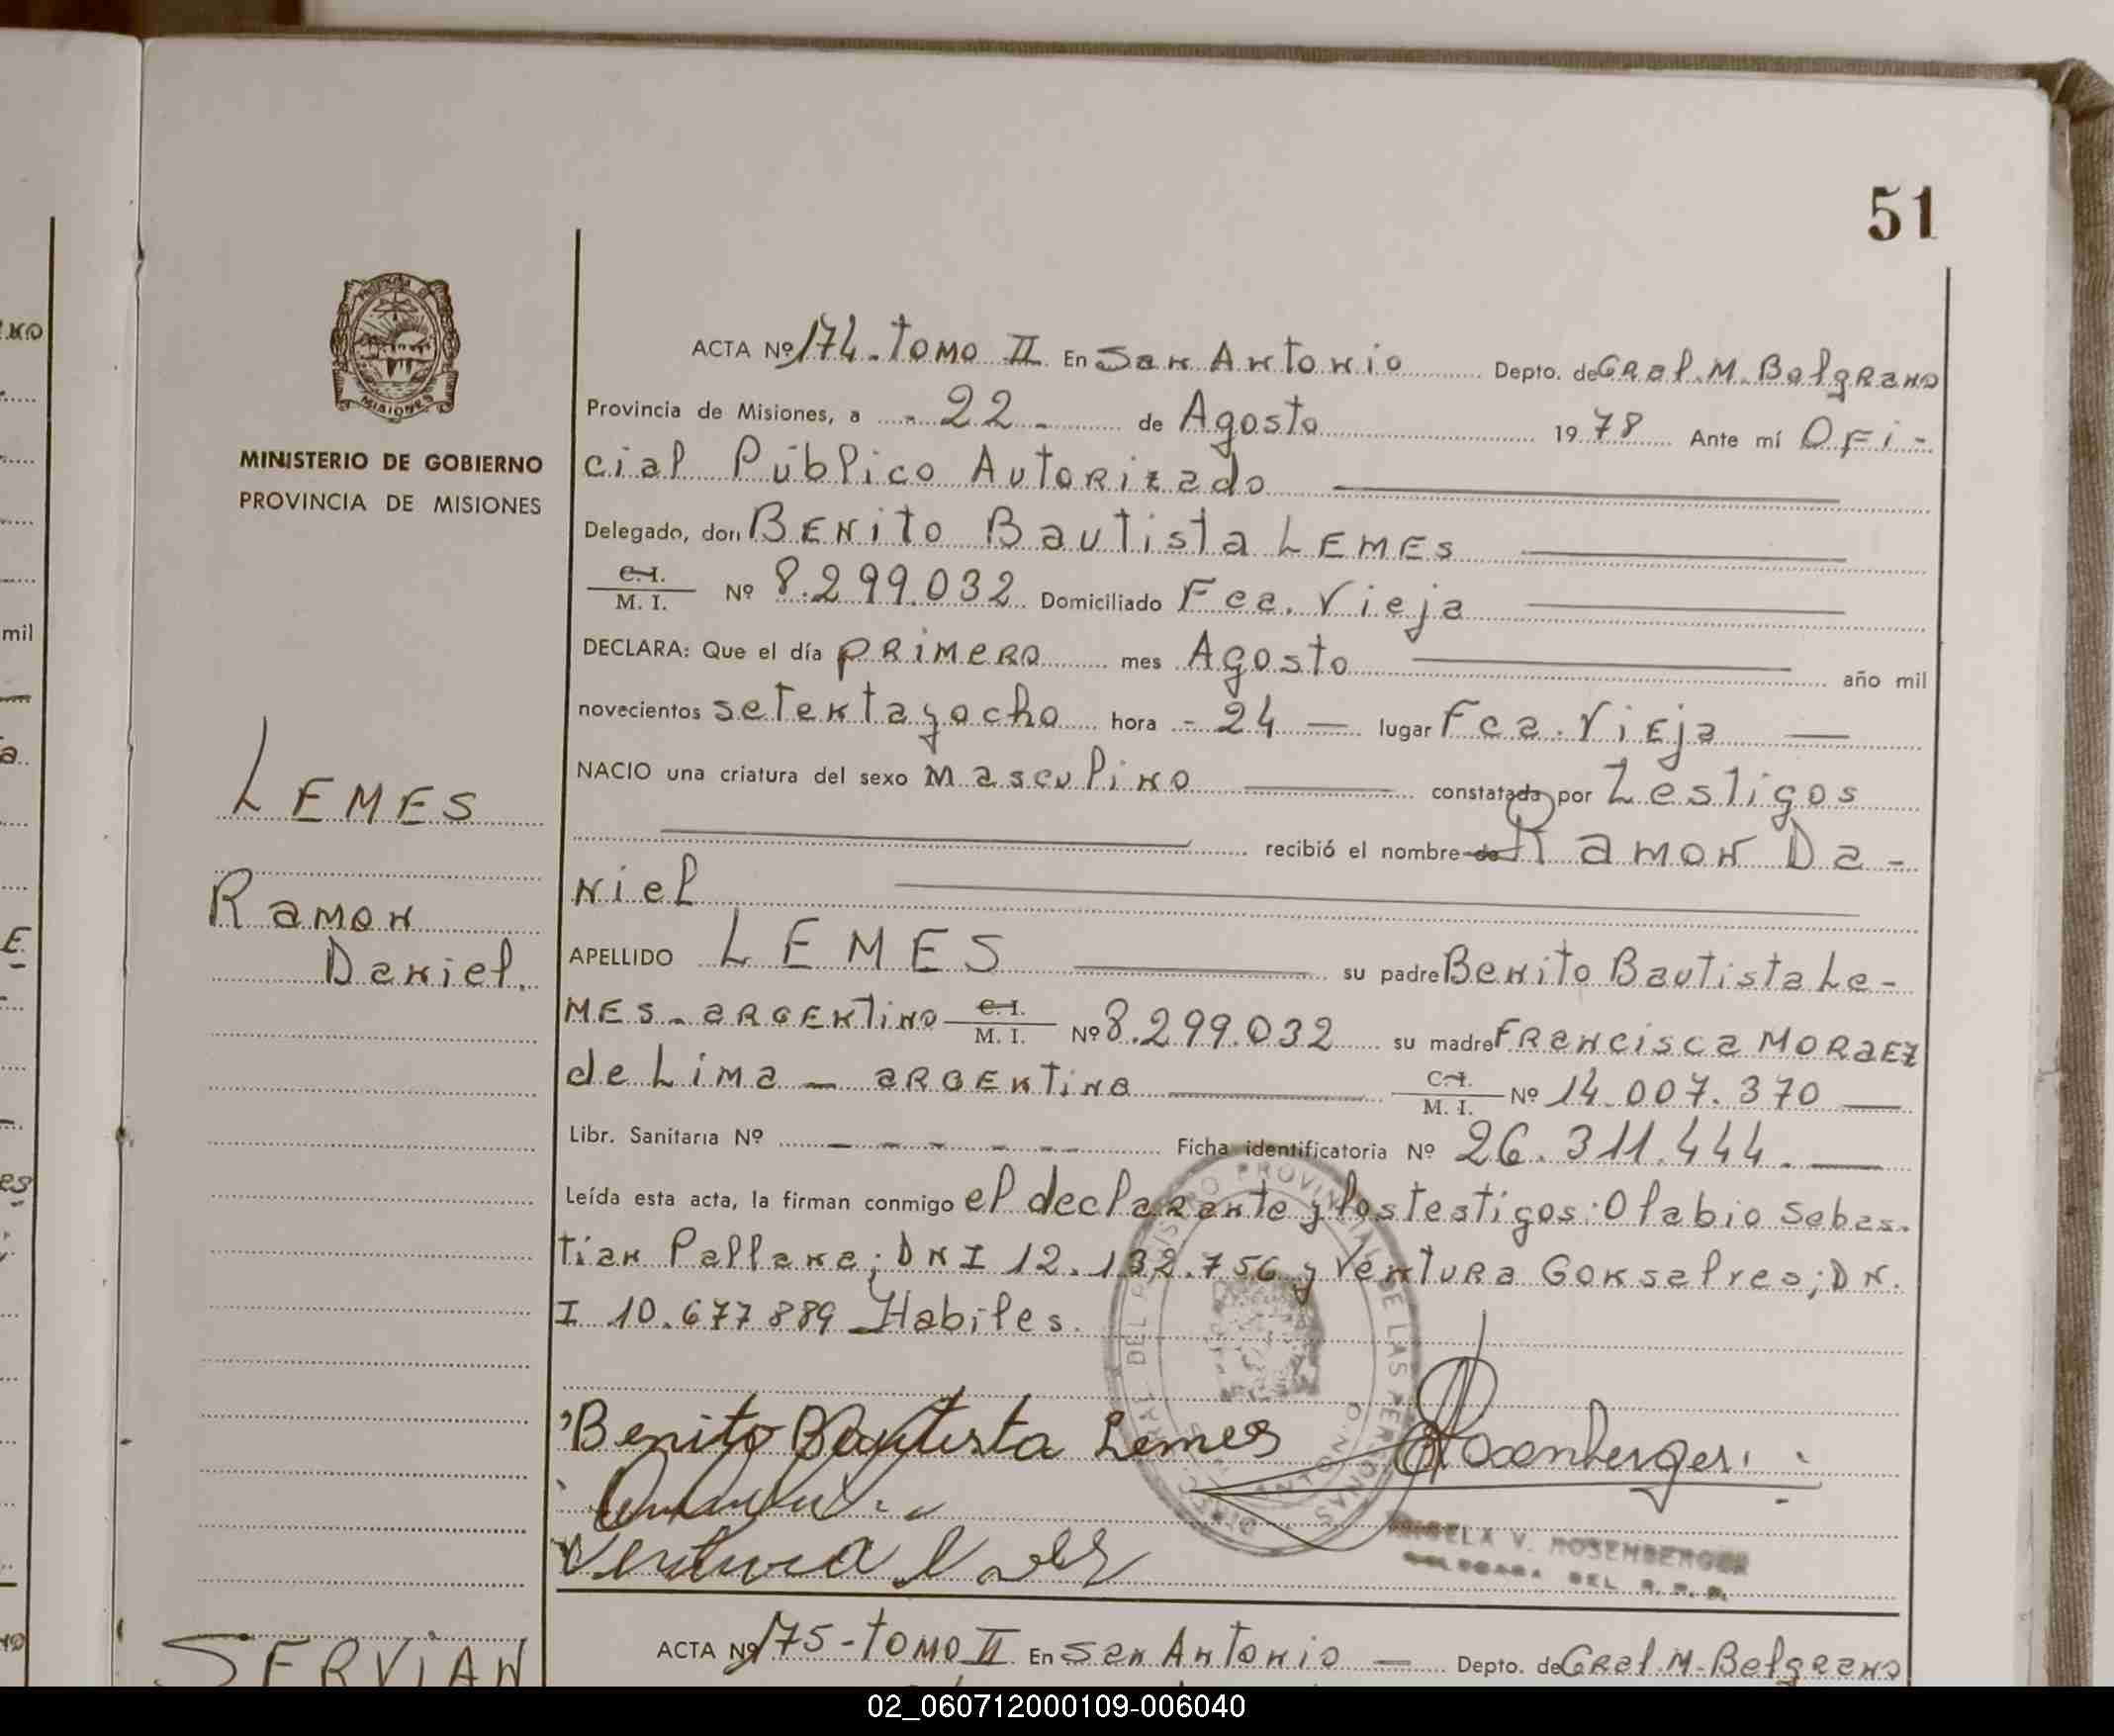 51
ACTA Nº 174 - Tomo II En San Antonio Depto. de Gral. M. Belgrano
Provincia de Misiones, a - 22 - de Agosto 1978 Ante mí Ofi-
cial Público Autorizado
Delegado, don Benito Bautista LEMES
C. I. / M. I. Nº 8.299.032 Domiciliado Fca. Vieja
DECLARA: Que el día primero mes Agosto año mil
novecientos setenta y ocho hora - 24 — lugar Fca. Vieja —
NACIO una criatura del sexo masculino constatada por Testigos
recibió el nombre de Ramon Da-
niel
APELLIDO LEMES su padre Benito Bautista Le-
mes - argentino C. I. / M. I. Nº 8.299.032 su madre Francisca Moraez
de Lima — argentina C. I. / M. I. Nº 14.007.370 —
Libr. Sanitaria Nº - - - - - - Ficha identificatoria Nº 26.311.444. —
Leída esta acta, la firman conmigo el declarante y los testigos: Olabio Sebas-
tian Pallana; DNI 12.132.756 y Ventura Gonsalres; DN.
I 10.677889 Habiles.
Benito Bautista Lemes
Rosenberger
Ventura
V. ROSENBERGER
MINISTERIO DE GOBIERNO
PROVINCIA DE MISIONES
MISIONES
LEMES
Ramon
Daniel.
DEL REGISTRO PROVINCIAL DE LAS PERSONAS
ACTA Nº 175 - Tomo II En San Antonio — Depto. de Gral. M. Belgrano
SERVIAN
mil
02_060712000109-006040